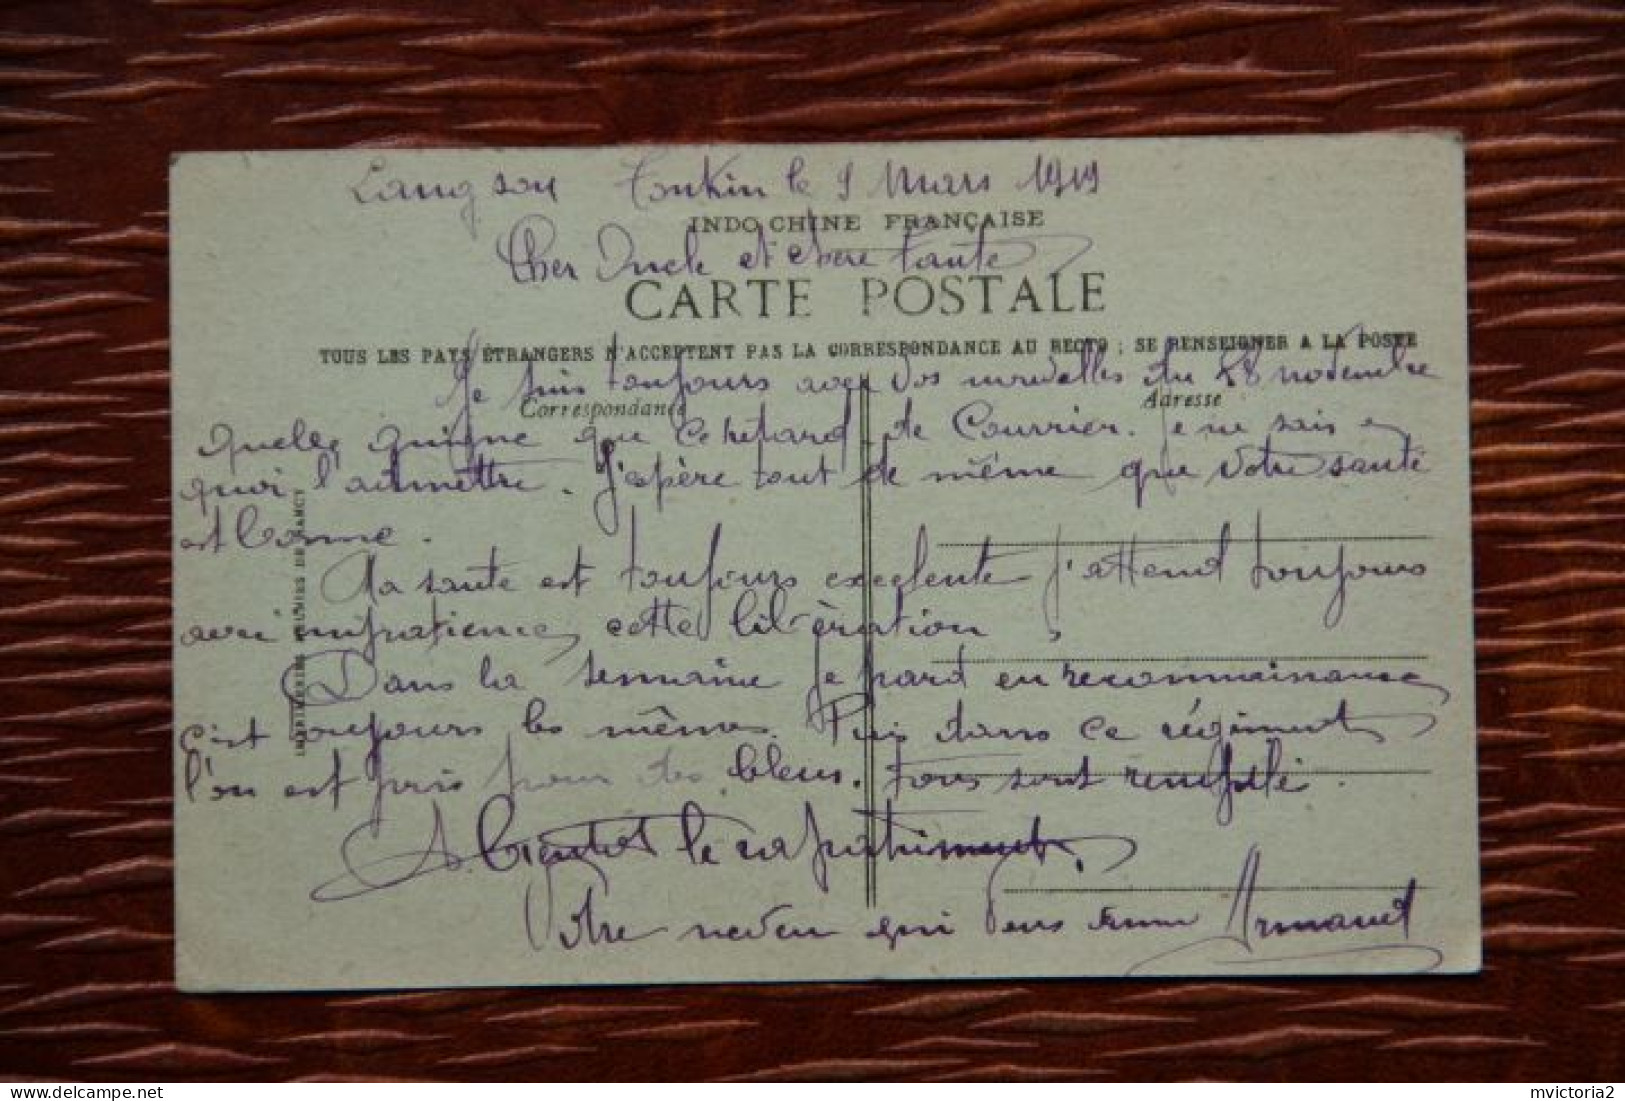 Lang son Tonkin le 9 Mars 1919
INDO CHINE FRANÇAISE
Cher Oncle et chère tante
CARTE POSTALE
TOUS LES PAYS ÉTRANGERS N'ACCEPTENT PAS LA CORRESPONDANCE AU RECTO ; SE RENSEIGNER A LA POSTE
Je suis toujours avec vos nouvelles du 28 novembre
Correspondance
Adresse
quelle guigne que ce retard de Courrier. Je ne sais
quoi l'admettre. J'espère tout de même que votre santé
est bonne.
Ma santé est toujours excelente j'attend toujours
avec impatience cette libération
Dans la semaine je part en reconnaissance
c'est toujours les mêmes. Puis dans ce régiment
l'on est pris pour des bleus. tous sont rempilé.
A bientot le rapatriment.
Votre neveu qui vous aime Armand
IMPRIMERIES RÉUNIES DE NANCY
mvictoria2